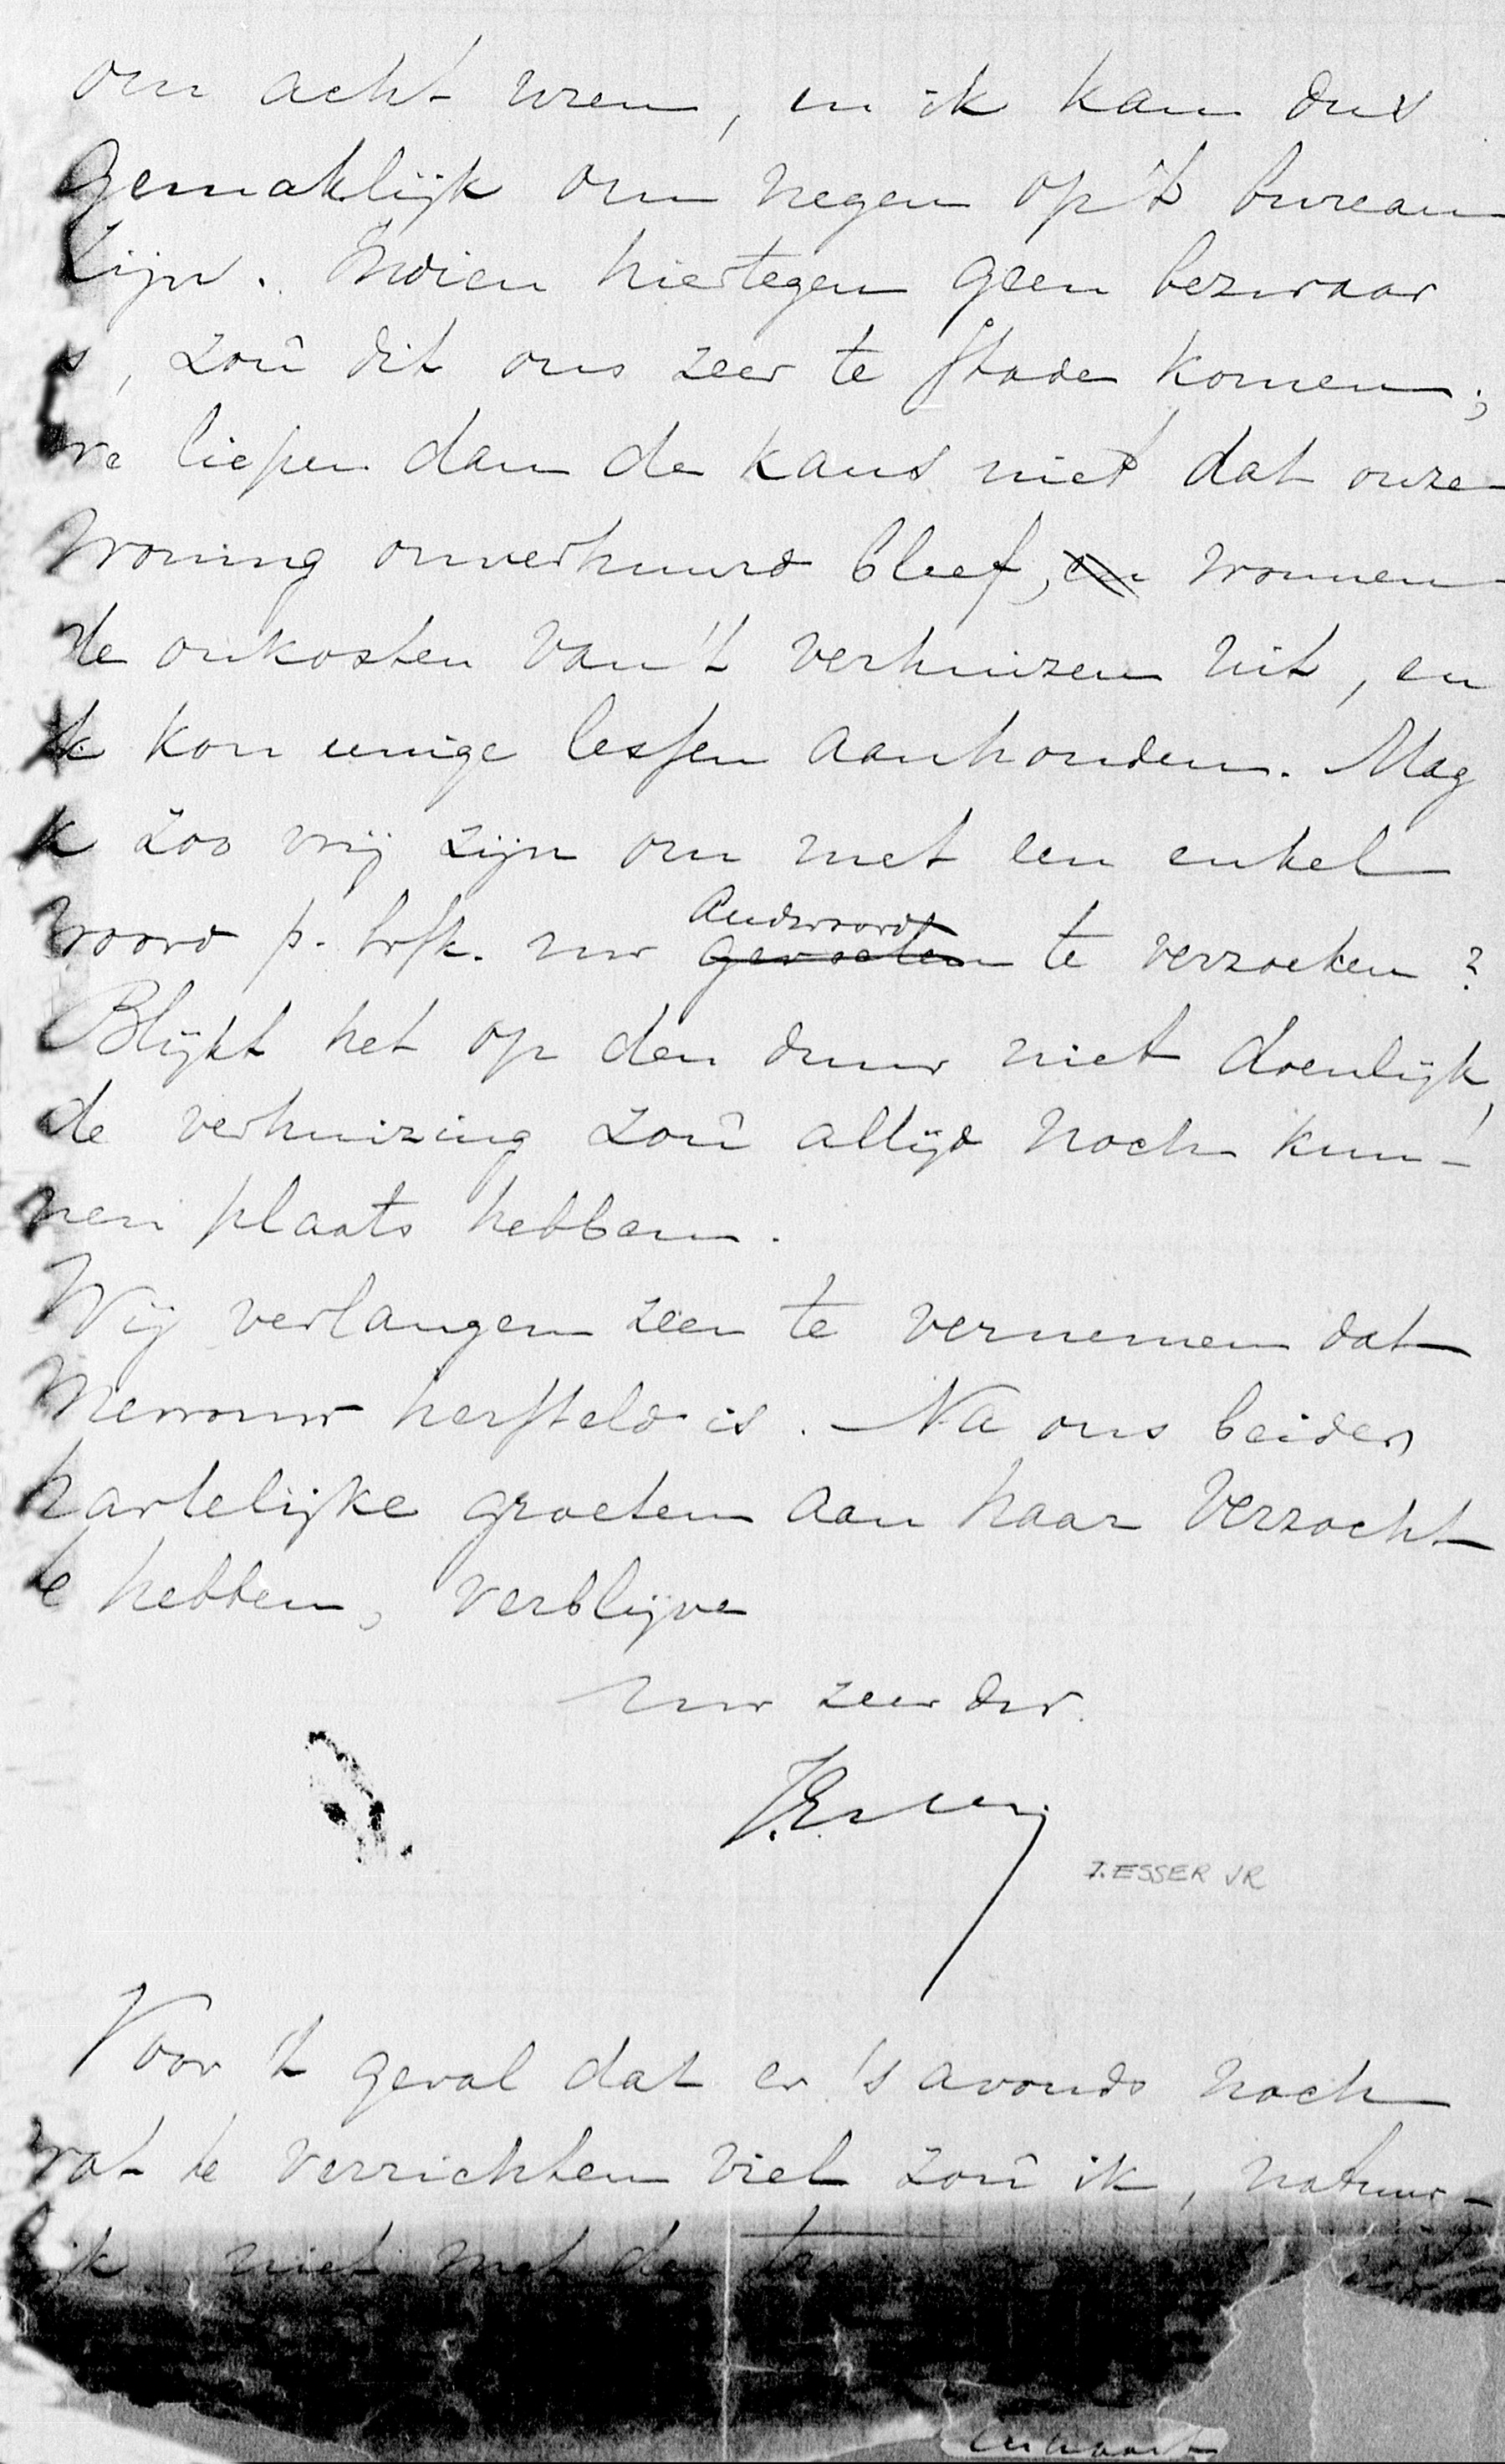 om acht uren, en ik kan dus
gemaklijk om negen op 't bureau
zijn. Indien hiertegen geen bezwaar
is, zoû dit ons zeer te stade komen;
we liepen dan de kans niet dat onze
woning onverhuurd bleef, en wonnen
de onkosten van 't verhuizen uit, en
ik kon eenige lessen aanhouden. Mag
ik zoo vrij zijn om met een enkel
woord p. brfk. uw
Andwoord
groeten te verzoeken?
Blijkt het op den duur niet doenlijk,
de verhuizing zoû altijd noch kun-
nen plaats hebben.
Wij verlangen zeer te vernemen dat
Mevrouw hersteld is. Na ons beider
hartelijke groeten aan haar verzocht
te hebben, verblijve
uw zeer dw.
J. Esser
J. ESSER JR
Voor 't geval dat er 's avonds noch
wat te verrichten viel zoû ik, natuur-
lijk niet met de